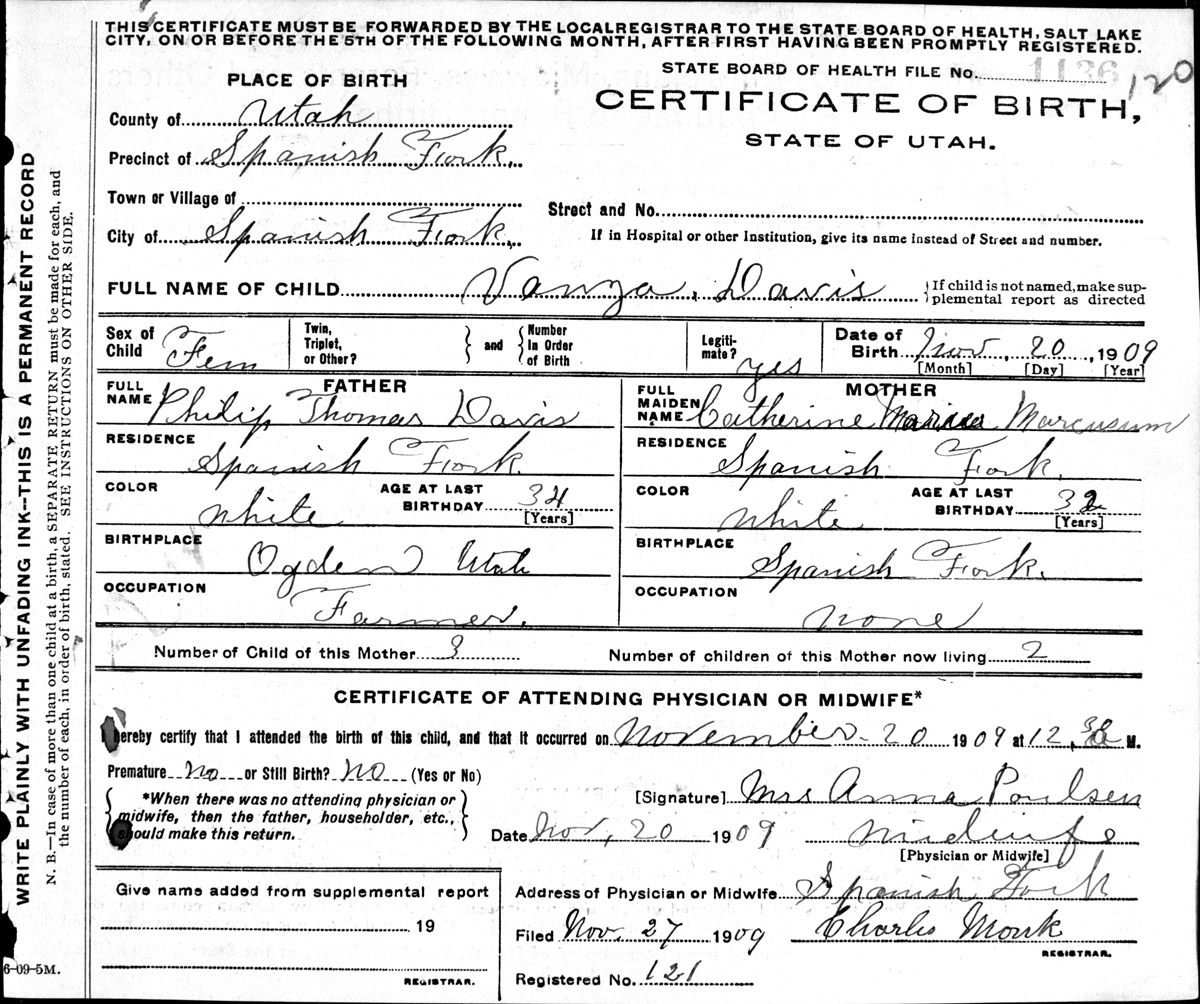 THIS CERTIFICATE MUST BE FORWARDED BY THE LOCAL REGISTRAR TO THE STATE BOARD OF HEALTH, SALT LAKE
CITY, ON OR BEFORE THE 5TH OF THE FOLLOWING MONTH, AFTER FIRST HAVING BEEN PROMPTLY REGISTERED.
STATE BOARD OF HEALTH FILE No. 1136 120
PLACE OF BIRTH
CERTIFICATE OF BIRTH,
STATE OF UTAH.
County of Utah
Precinct of Spanish Fork.
Town or Village of
Street and No.
City of Spanish Fork.
If in Hospital or other Institution, give its name instead of Street and number.
FULL NAME OF CHILD Vanza, Davis {If child is not named, make sup-
plemental report as directed
Sex of Child Fem
Twin, Triplet, or Other?
and
Number In Order of Birth
Legiti-mate? yes
Date of Birth Nov, 20, 1909
[Month] [Day] [Year]
FATHER
FULL NAME Philip Thomas Davis
RESIDENCE Spanish Fork.
COLOR White AGE AT LAST BIRTHDAY 34 [Years]
BIRTHPLACE Ogden Utah
OCCUPATION Farmer.
MOTHER
FULL MAIDEN NAME Catherine Marcusum
RESIDENCE Spanish Fork.
COLOR White AGE AT LAST BIRTHDAY 32 [Years]
BIRTHPLACE Spanish Fork.
OCCUPATION none
Number of Child of this Mother 3 Number of children of this Mother now living 2
CERTIFICATE OF ATTENDING PHYSICIAN OR MIDWIFE*
I hereby certify that I attended the birth of this child, and that it occurred on November. 20 1909 at 12, M.
Premature No or Still Birth? NO (Yes or No)
*When there was no attending physician or
midwife, then the father, householder, etc.,
should make this return.
[Signature] Mrs Anna Poulsen
Date Nov, 20 1909 midwife
[Physician or Midwife]
Give name added from supplemental report
19
REGISTRAR.
Address of Physician or Midwife Spanish Fork
Filed Nov. 27 1909 Charles Monk
REGISTRAR.
Registered No. 121
6-09-5M.
WRITE PLAINLY WITH UNFADING INK--THIS IS A PERMANENT RECORD
N. B.—In case of more than one child at a birth, a SEPARATE RETURN must be made for each, and
the number of each, in order of birth, stated. SEE INSTRUCTIONS ON OTHER SIDE.